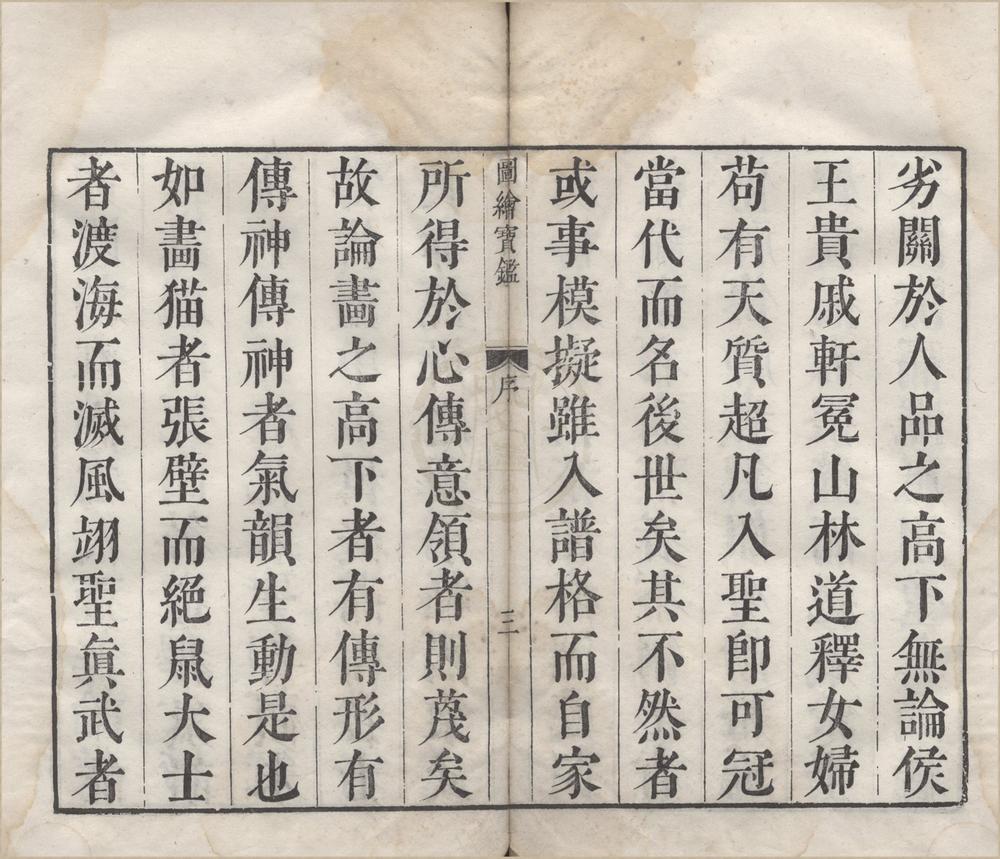 劣關於人品之高下無論侯
王貴戚軒冕山林道釋女婦
苟有天質超凡入聖卽可冠
當代而名後世矣其不然者
或事模擬雖入譜格而自家
圖繪寶鑑
序
三
所得於心傳意領者則蔑矣
故論畵之高下者有傳形有
傳神傳神者氣韻生動是也
如畵猫者張壁而絕鼠大士
者渡海而滅風翊聖眞武者